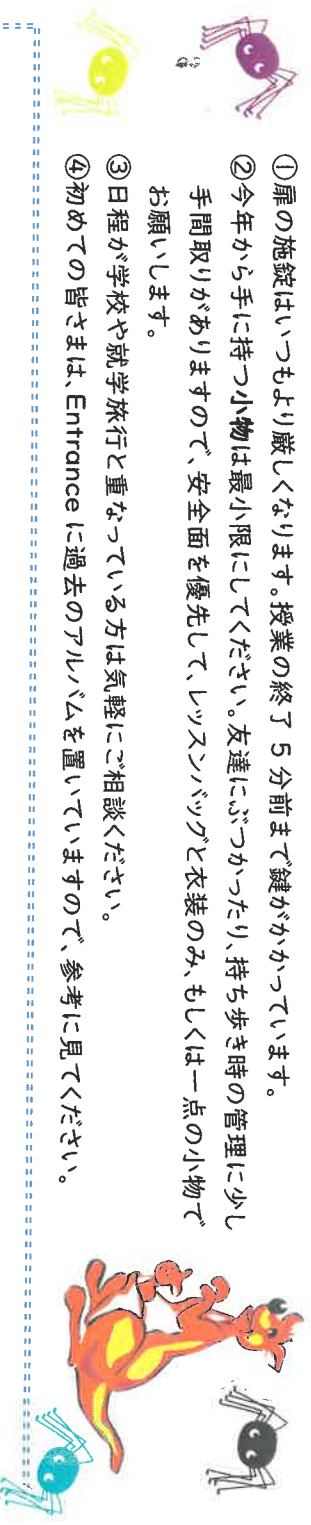 ①扉の施錠はいつもより厳しくなります。授業の終了 5 分前まで鍵がかかっています。
②今年から手に持つ小物は最小限にしてください。友達にぶつかったり、持ち歩き時の管理に少し
手間取りがありますので、安全面を優先して、レッスンバッグと衣装のみ、もしくは一点の小物で
お願いします。
③日程が学校や就学旅行と重なっている方は気軽にご相談ください。
④初めての皆さまは、Entrance に過去のアルバムを置いていますので、参考に見てください。